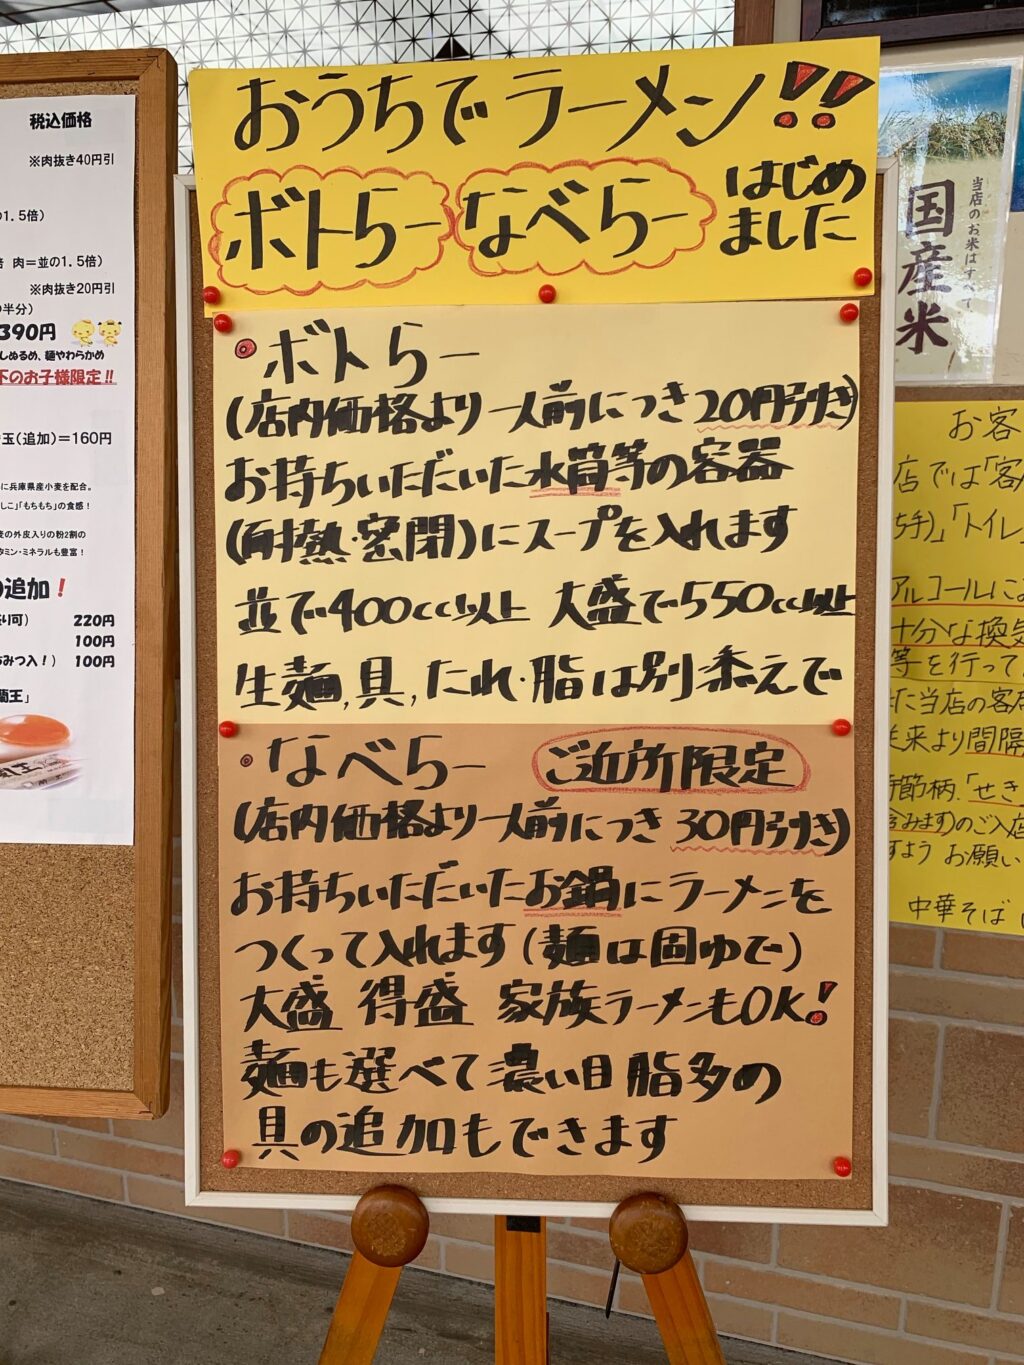 税込価格
※肉抜き40円引
の1.5倍)
倍 肉=並の1.5倍)
※肉抜き20円引
の半分)
390円
しぬるめ、麺やわらかめ
下のお子様限定!!
玉(追加)=160円
に兵庫県産小麦を配合。
しこ」「もちもち」の食感!
麦の外皮入りの粉2割の
タミン・ミネラルも豊富!
の追加!
り可) 220円
100円
みつ入!) 100円
蘭王」
おうちでラーメン!!
ボトらー なべらー はじめ
ました
・ボトらー
(店内価格より一人前につき20円引き)
お持ちいただいた水筒等の容器
(耐熱・密閉)にスープを入れます
並で400cc以上 大盛で550cc以上
生麺,具,たれ・脂は別添えで
・なべらー ご近所限定
(店内価格より一人前につき30円引き)
お持ちいただいたお鍋にラーメンを
つくって入れます(麺は固ゆで)
大盛 得盛 家族ラーメンもOK!
麺も選べて濃い目脂多の
具の追加もできます
当店のお米はすべて
国産米
お客
店では「客
ち手)」「トイレ
アルコールによ
十分な換気
等を行って
た当店の客
来より間隔
節柄、「せき
含みます)のご入店
すよう お願い
中華そば